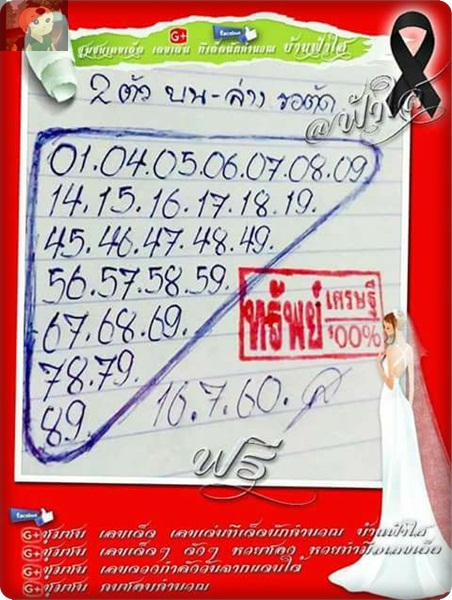 ชุมชนเลขเด็ด เลขเด่น ทีเด็ดนักคำนวณ บ้านฟ้าใส
2 ตัว บน-ล่าง รอตัด
@ฟ้าใส
01.04.05.06.07.08.09
14.15.16.17.18.19.
45.46.47.48.49.
56.57.58.59.
67.68.69.
78.79.
89.
16.7.60.
ทรัพย์ เศรษฐี
100%
ฟรี
G+ชุมชน เลขเด็ด เลขเด่นทีเด็ดนักคำนวณ บ้านฟ้าใส
G+ชุมชน เลขเด็ดๆ ดังๆ หวยซอง หวยทำมือแม่นเด็ด
G+ชุมชน
G+ชุมชน คนชอบคำนวณ